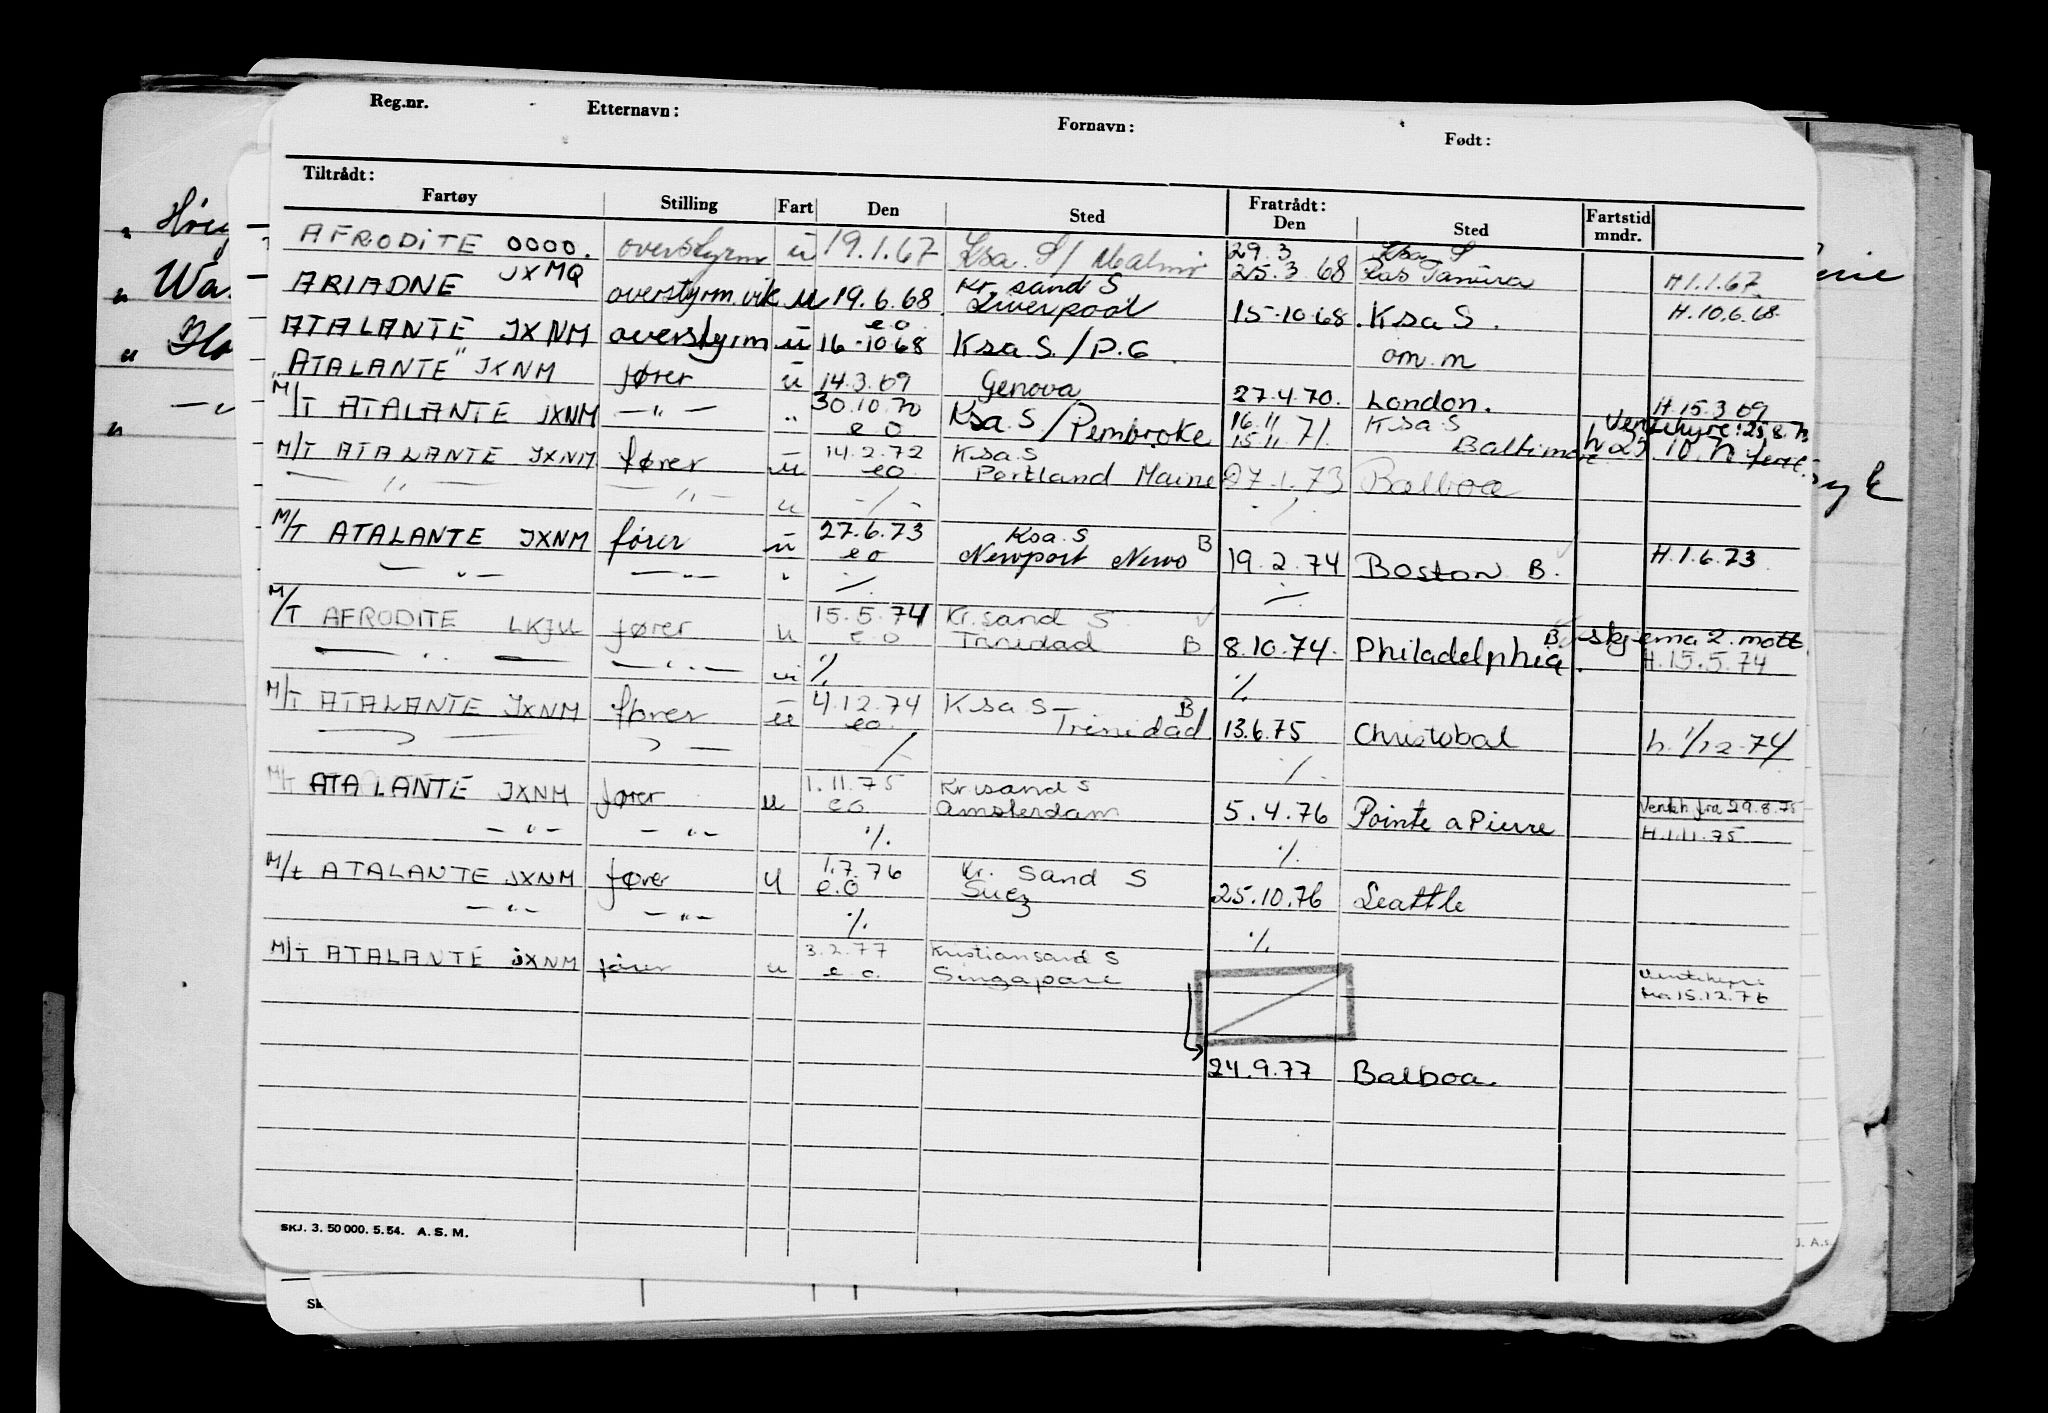 Reg.nr. Etternavn: Fornavn: Født:
Tiltrådt: Fratrådt:
Fartøy Stilling Fart Den Sted Den Sted Fartstid mndr.
AFRODITE OOOO. overstyrm u 19.1.67 Ksa. S/ Malmø 29.3 25.3.68 Ksa. S Ras Tanura H 1.1.67
ARIADNE JXMQ overstyrm. vik u 19.6.68 Kr. sand S Liverpool 15.10.68. Ksa S. H. 10.6.68.
ATALANTE JXNM overstyrm u 16-10.68 e.o. Ksa S. / P.G. om.m
ATALANTE" JXNM fører u 14.3.69 Genova 27.4.70. London. H. 15.3.69
M/T ATALANTE JXNM —"— " 30.10.70 e.o Ksa. S / Pembroke 16.11 15.11 71. Ksa S Baltimore
M/T ATALANTE JXNM fører u 14.2.72 eo Ksa S Portland Maine 27.1.73 Balboa
— " — — " — u —/— ./.
M/T ATALANTE JXNM fører u 27.6.73 eo Ksa. S Newport News B 19.2.74 Boston B. H. 1.6.73
— " — — " — " ./. ./.
M/T AFRODITE LKJU fører u 15.5.74 e.o Kr.sand S Trinidad B 8.10.74. Philadelphia. B skjema 2. mott. H. 15.5.74
— " — — " — u ./. ./.
M/T ATALANTE JXNM fører u 4.12.74 eo. Ksa S— Trinidad B 13.6.75 Christobal h. 1/12-74
— " — ./. ./.
M/T ATALANTE JXNM fører u 1.11.75 e.o. Kr.sand S Amsterdam 5.4.76 Pointe a Pierre Venteh fra 29.8.75 H. 1.11.75
— " — — " — ./. ./.
M/t ATALANTE JXNM fører u 1.7.76 e.o Kr. Sand S Suez 25.10.76 Seattle
— " — — " — ./. ./.
M/T ATALANTE JXNM fører u 3.2.77 e.o. Kristiansand S Singapore fra 15.12.76
24.9.77 Balboa.
SKJ. 3. 50 000. 5. 54. A. S. M.